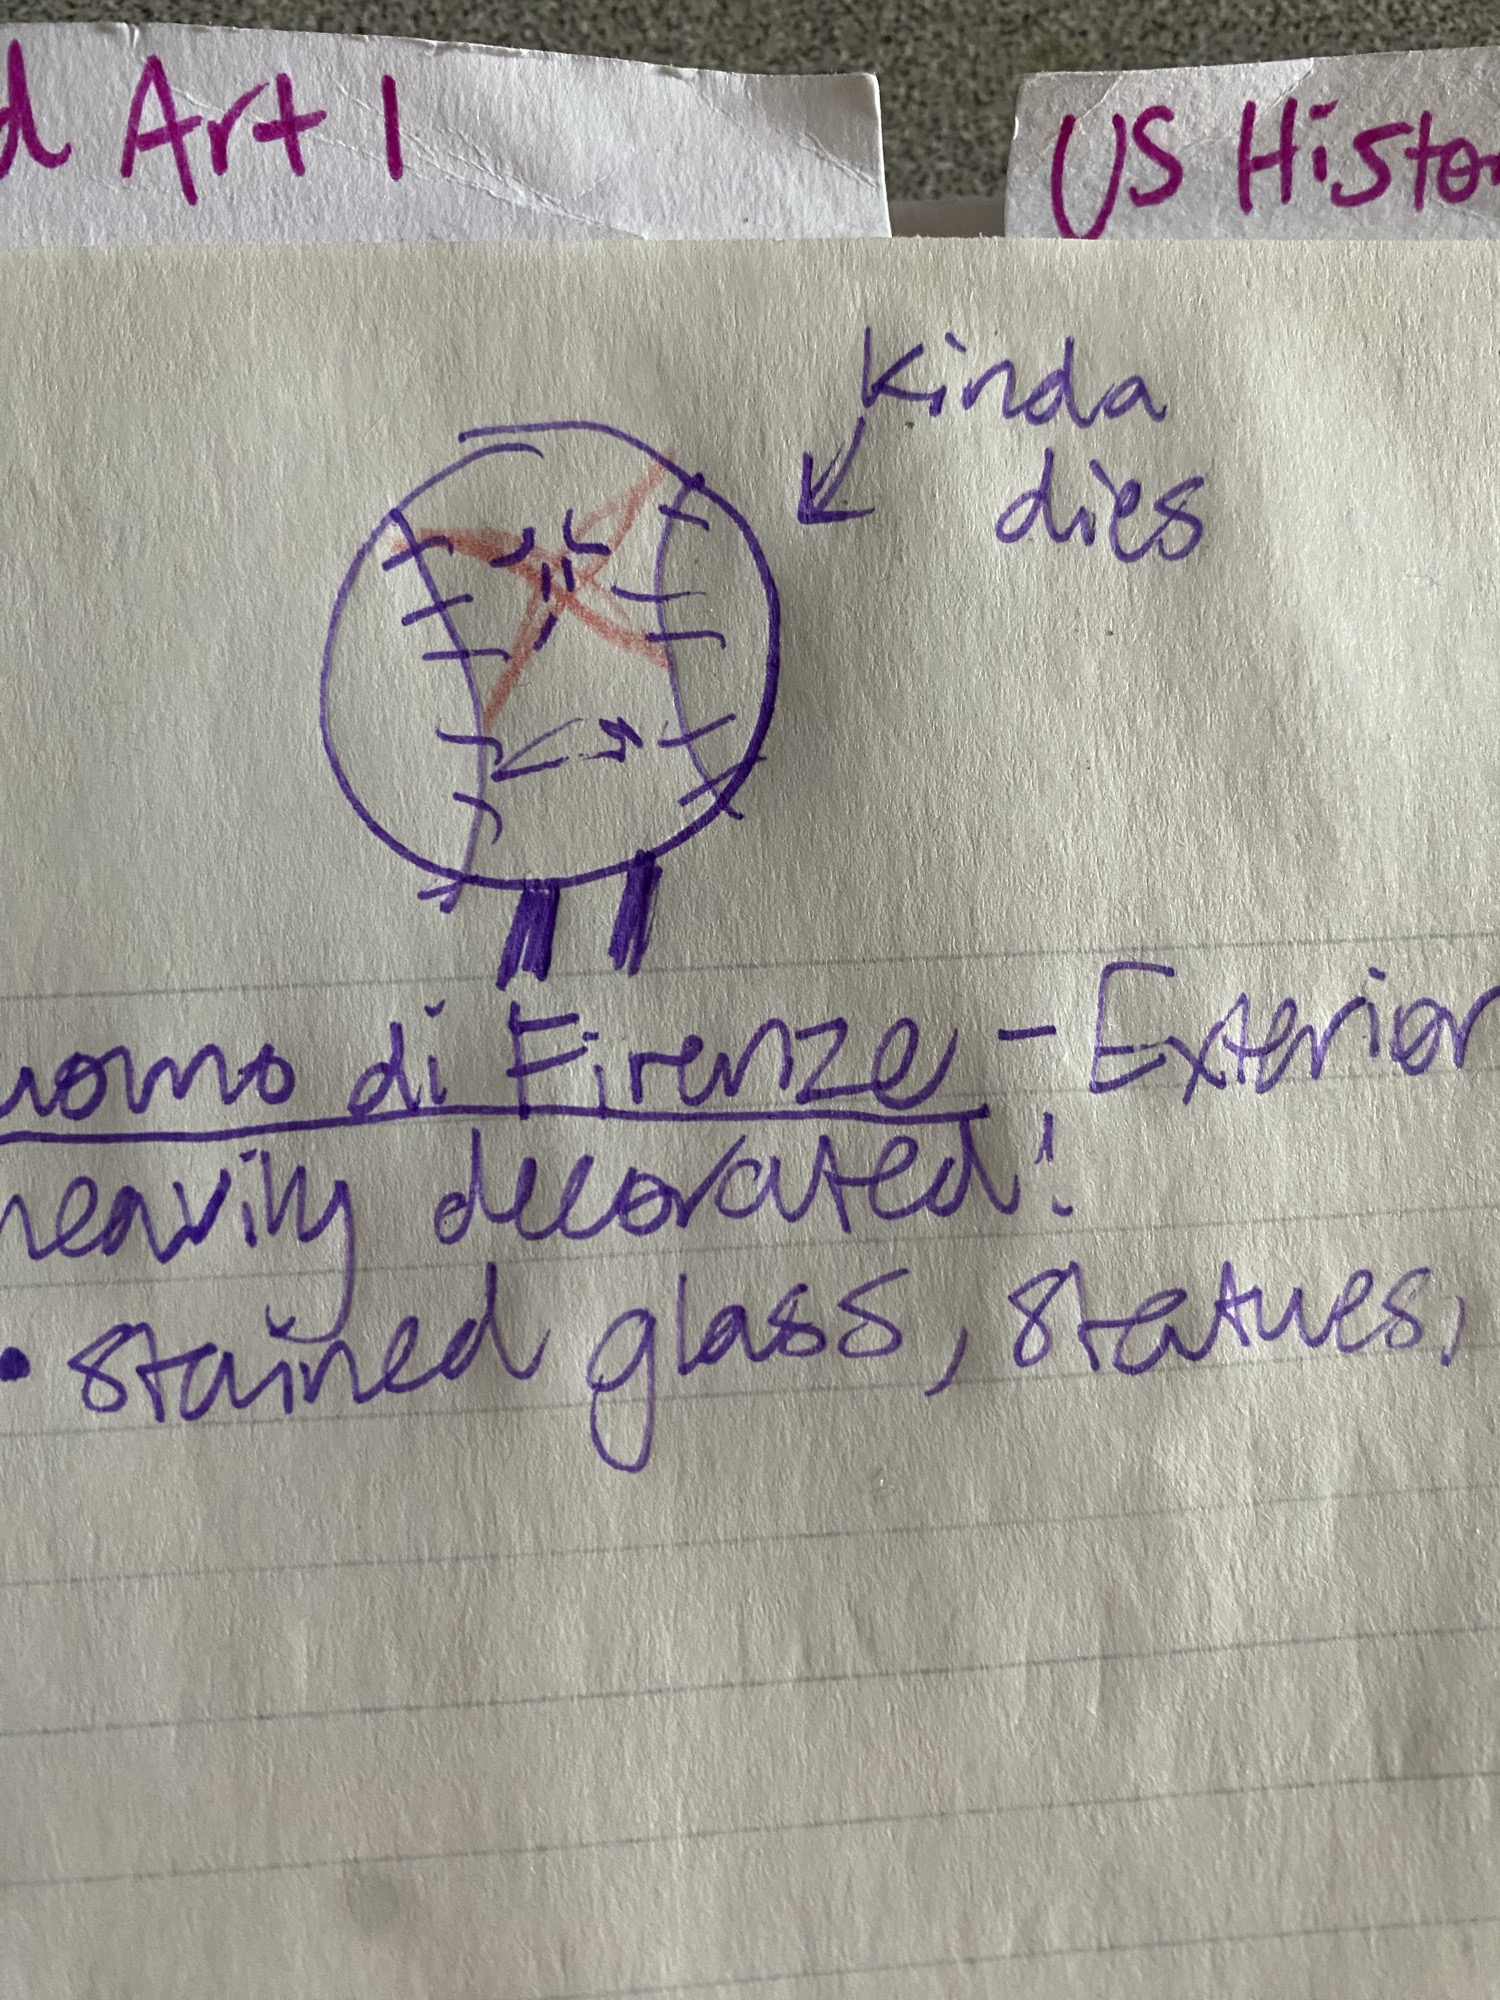 d Art 1
US Histo
kinda
dies
uomo di Firenze - Exterior
heavily decorated!
• stained glass, statues,